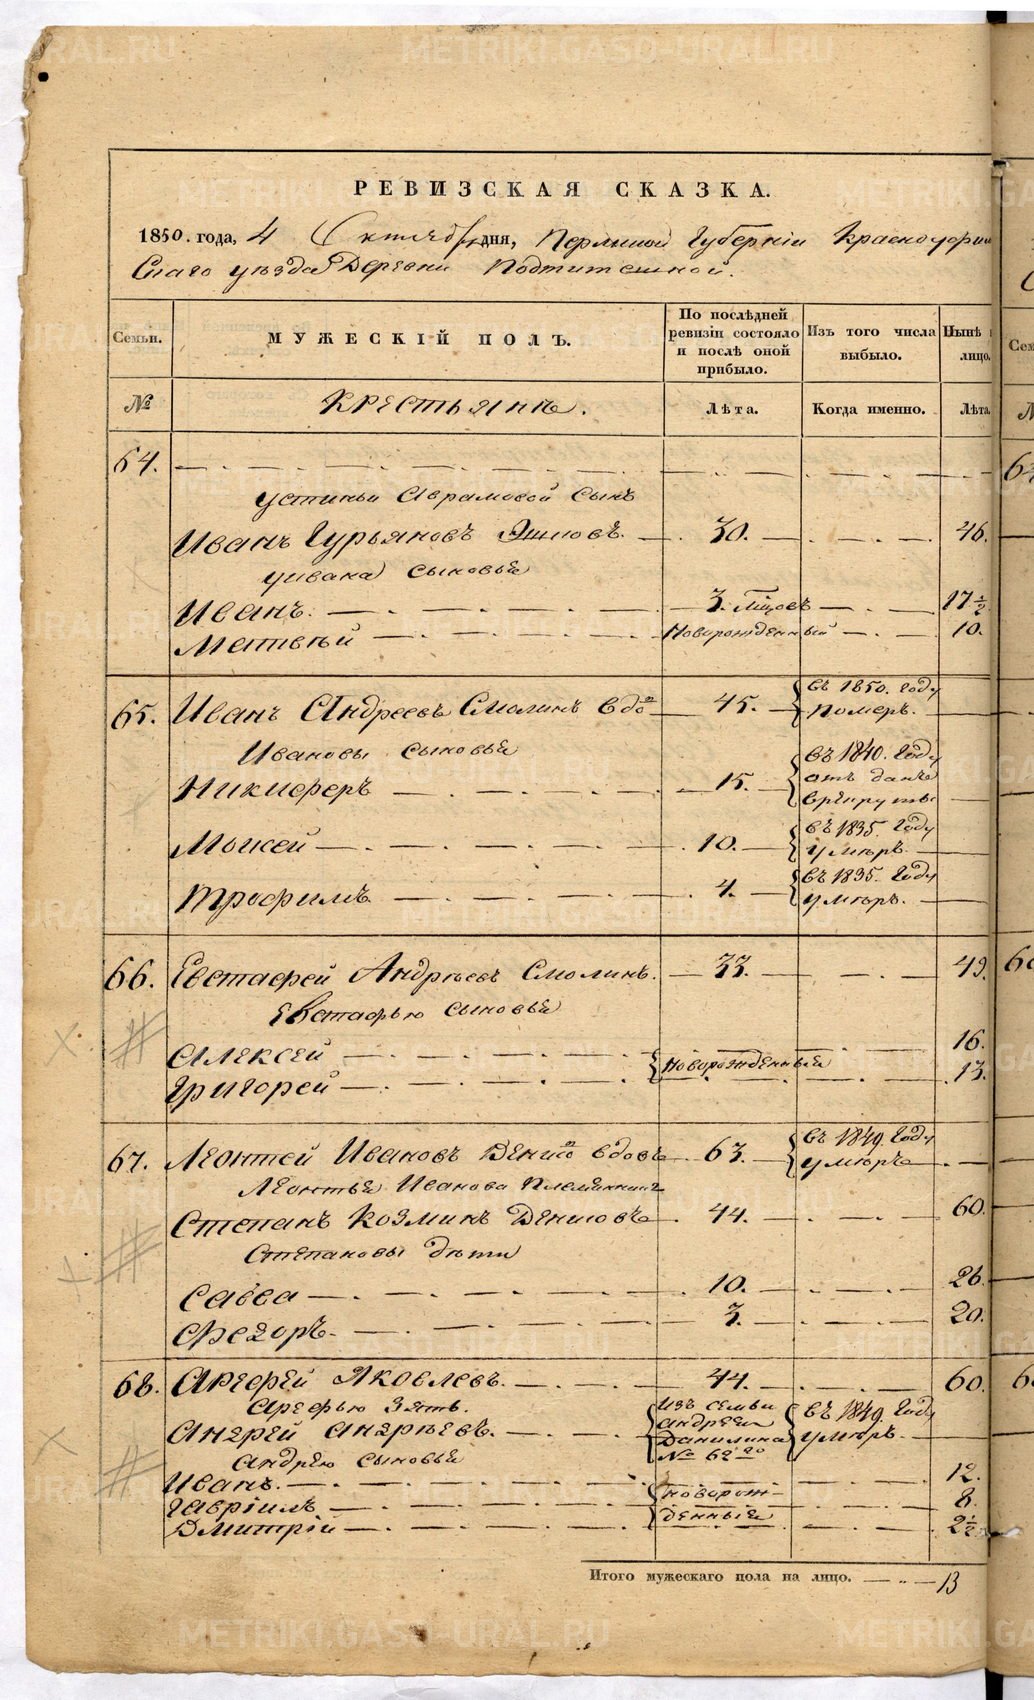 РЕВИЗСКАЯ СКАЗКА.
1850. года, 4 Октября дня, Пермской Губернiи Красноуфим
скаго уѣзда Деревни Подтитешной.
Семьи.
МУЖЕСКIЙ ПОЛЪ.
По послѣдней ревизiи состояло и послѣ оной прибыло.
Изъ того числа выбыло.
Нынѣ
лицо.
№
Крестьяне.
Лѣта.
Когда именно.
Лѣта.
64.
Устиньи Аврамовой сынъ
Иванъ Гурьяновъ 30. 46.
Ивана сыновья
Иванъ. 3. 17½
Матвѣй Новорожденный 10.
65. Иванъ Андреевъ Смолинъ 45. въ 1850. году
померъ.
Ивановы сыновья
Никиферъ 15. въ 1840. году
отъ данъ
врекруты
Моисей 10. въ 1835. году
умѣръ.
Трофимъ 4. въ 1835. году
умѣръ.
66. Евстафей Андрѣевъ Смолинъ. 33. 49.
Евстафью сыновья
Алексей 16.
Новорожденныя
Григорей 13.
67. Леонтей Ивановъ 63. въ 1849 году
умѣръ
Леонтья Иванова племянникъ
Степанъ Козминъ Денисовъ 44. 60.
Степановы дѣти
Савва 10. 26.
Федоръ. 3. 20.
68. Арефей Яковлевъ. 44. 60.
Арефью зять.
Андрей Андрѣевъ. изъ семьи
Андрея
Данилина
№ 62го въ 1849 году
умѣръ.
Андрею сыновья
Иванъ. 12.
Гаврiилъ новорож- 8.
Дмитрiй денныя 2½
Итого мужескаго пола на лицо. 13
METRIKI.GASO-URAL.RU